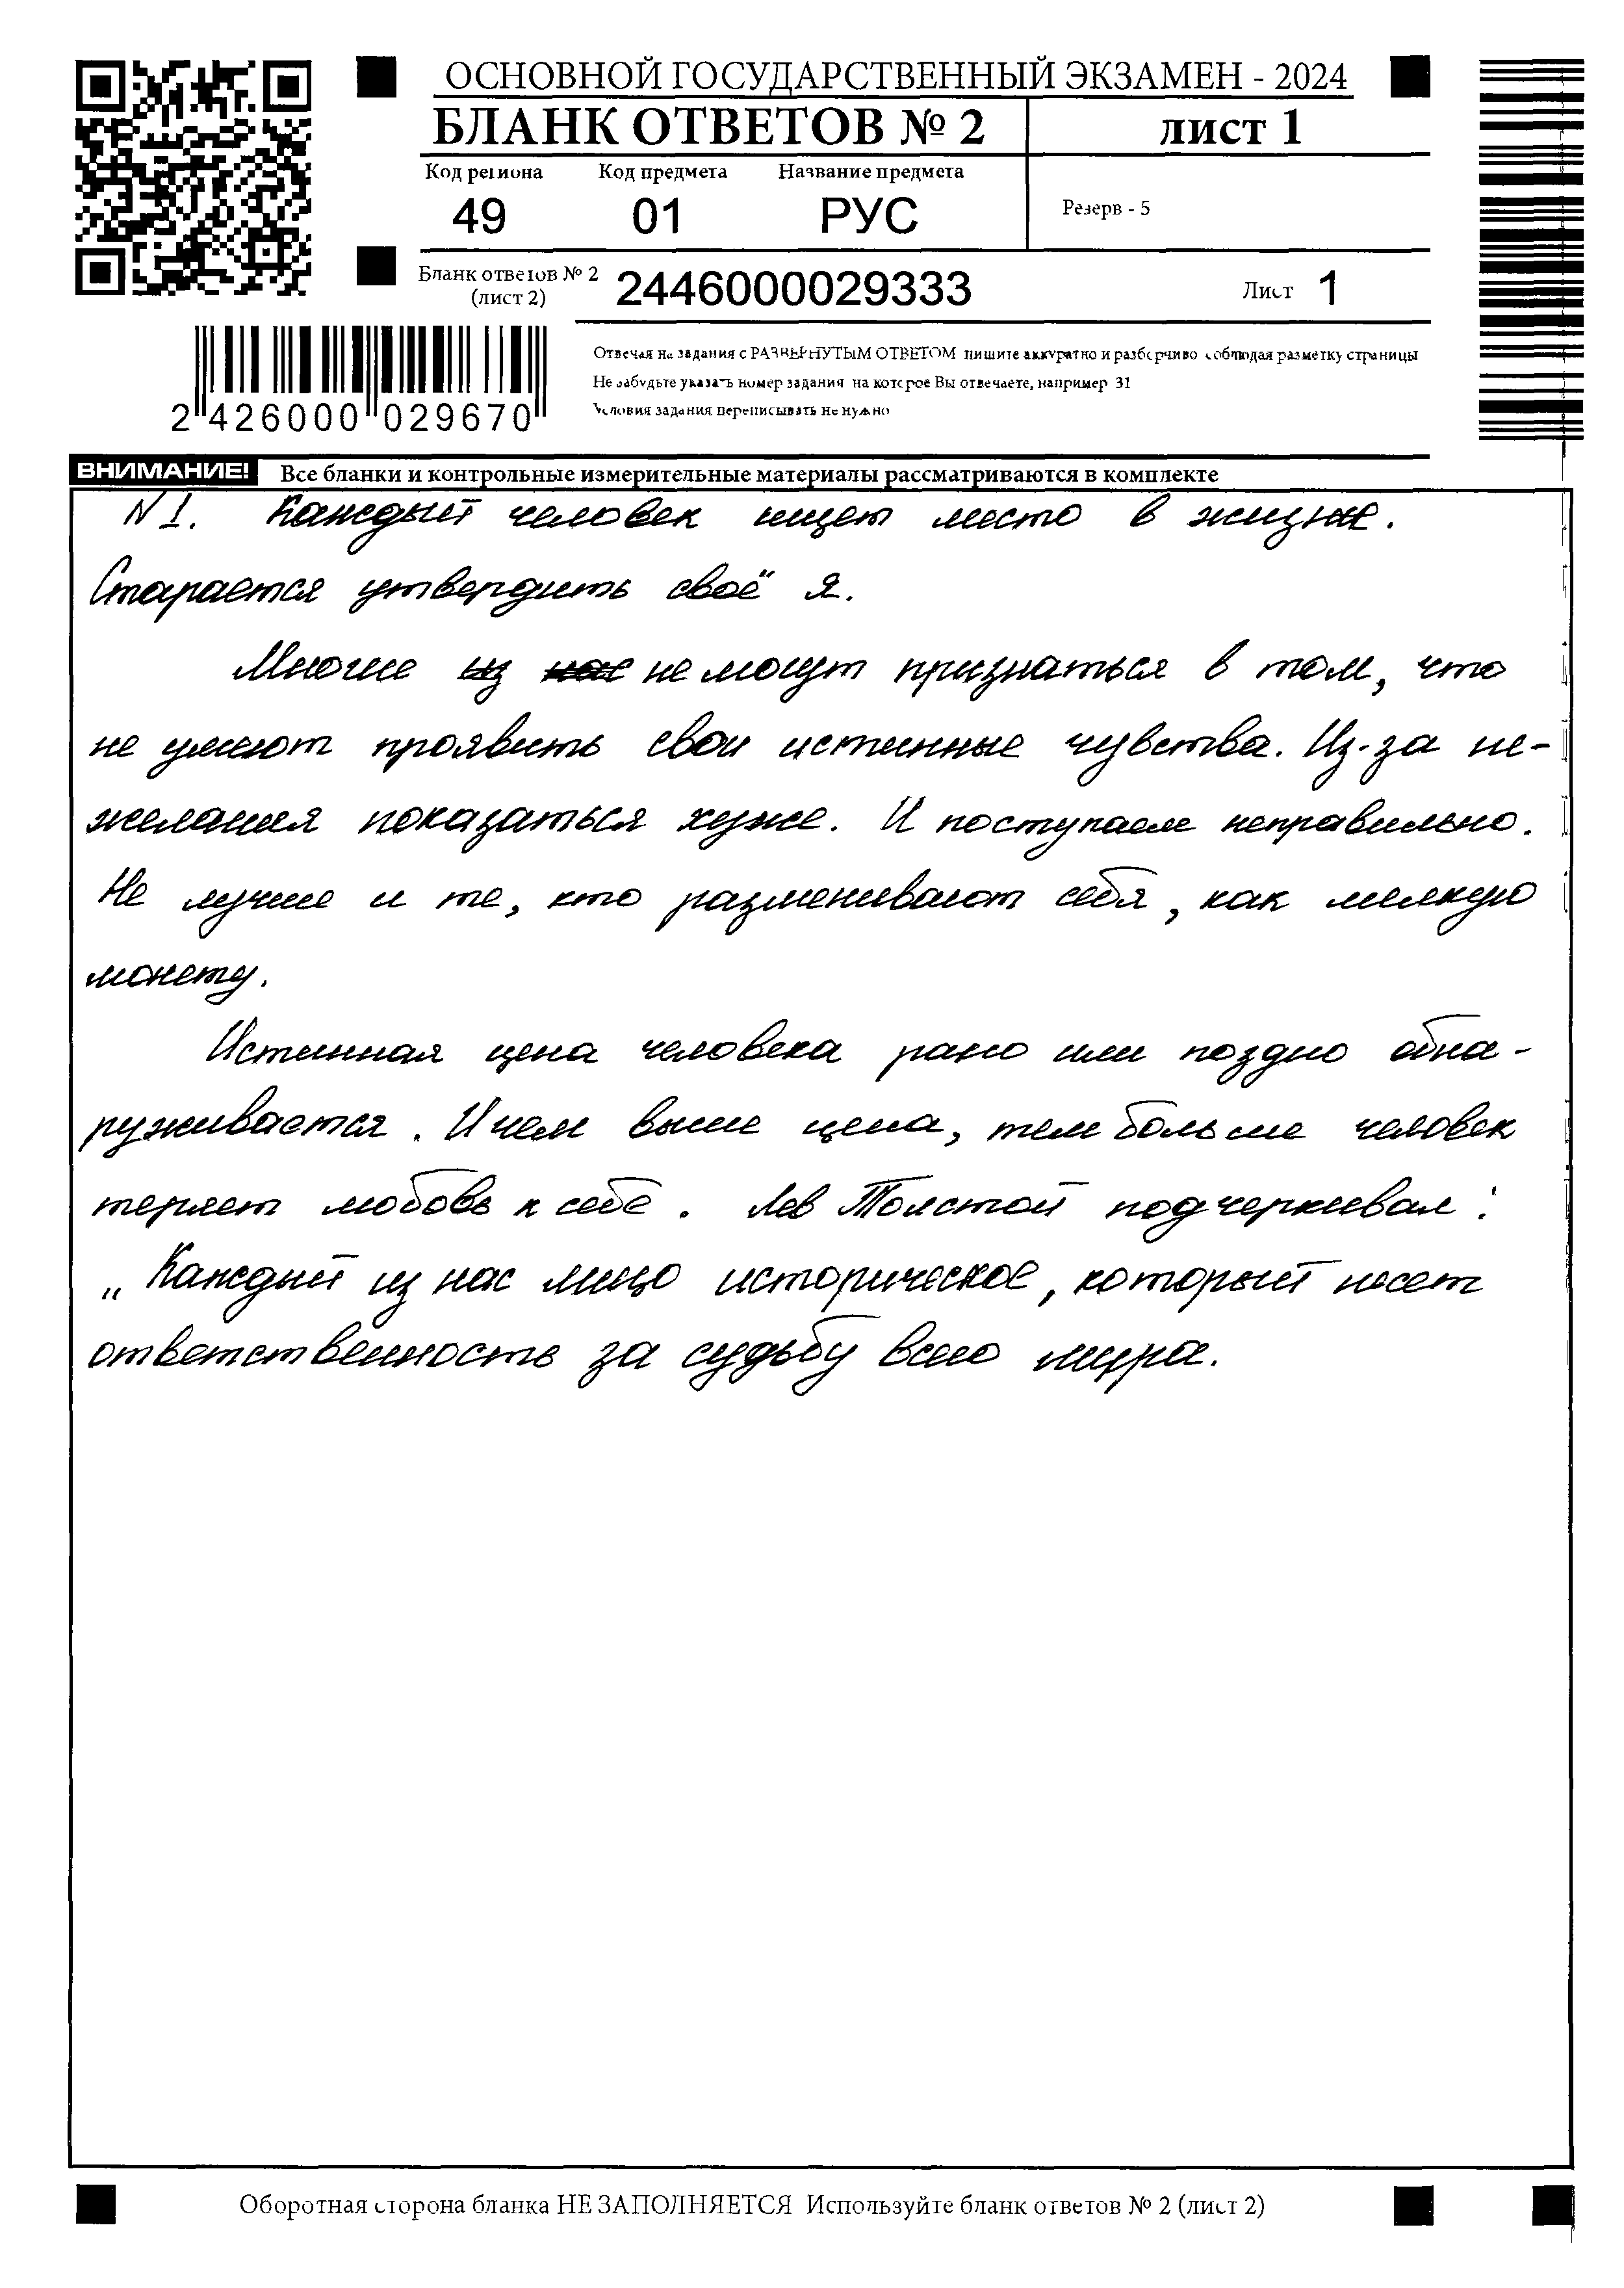 ОСНОВНОЙ ГОСУДАРСТВЕННЫЙ ЭКЗАМЕН - 2024
БЛАНК ОТВЕТОВ № 2 лист 1
Код региона Код предмета Название предмета
49 01 РУС Резерв - 5
Бланк ответов № 2 (лист 2) 2446000029333 Лист 1
Отвечая на задания с РАЗВЕРНУТЫМ ОТВЕТОМ пишите аккуратно и разборчиво соблюдая разметку страницы
Не забудьте указать номер задания на которое Вы отвечаете, например 31
Условия задания переписывать не нужно
2 426000 029670
ВНИМАНИЕ! Все бланки и контрольные измерительные материалы рассматриваются в комплекте
N 1. Каждый человек ищет место в жизни.
Старается утвердить своё я.
Многие из нас не могут признаться в том, что
не умеют проявить свои истинные чувства. Из-за не-
желания показаться хуже. И поступаем неправильно.
Не лучше и те, кто разменивают себя, как мелкую
монету.
Истинная цена человека рано или поздно обна-
руживается. И чем выше цена, тем больше человек
теряет любовь к себе. Лев Толстой подчеркивал:
„Каждый из нас лицо историческое, который несет
ответственность за судьбу всего мира.
Оборотная сторона бланка НЕ ЗАПОЛНЯЕТСЯ Используйте бланк ответов № 2 (лист 2)